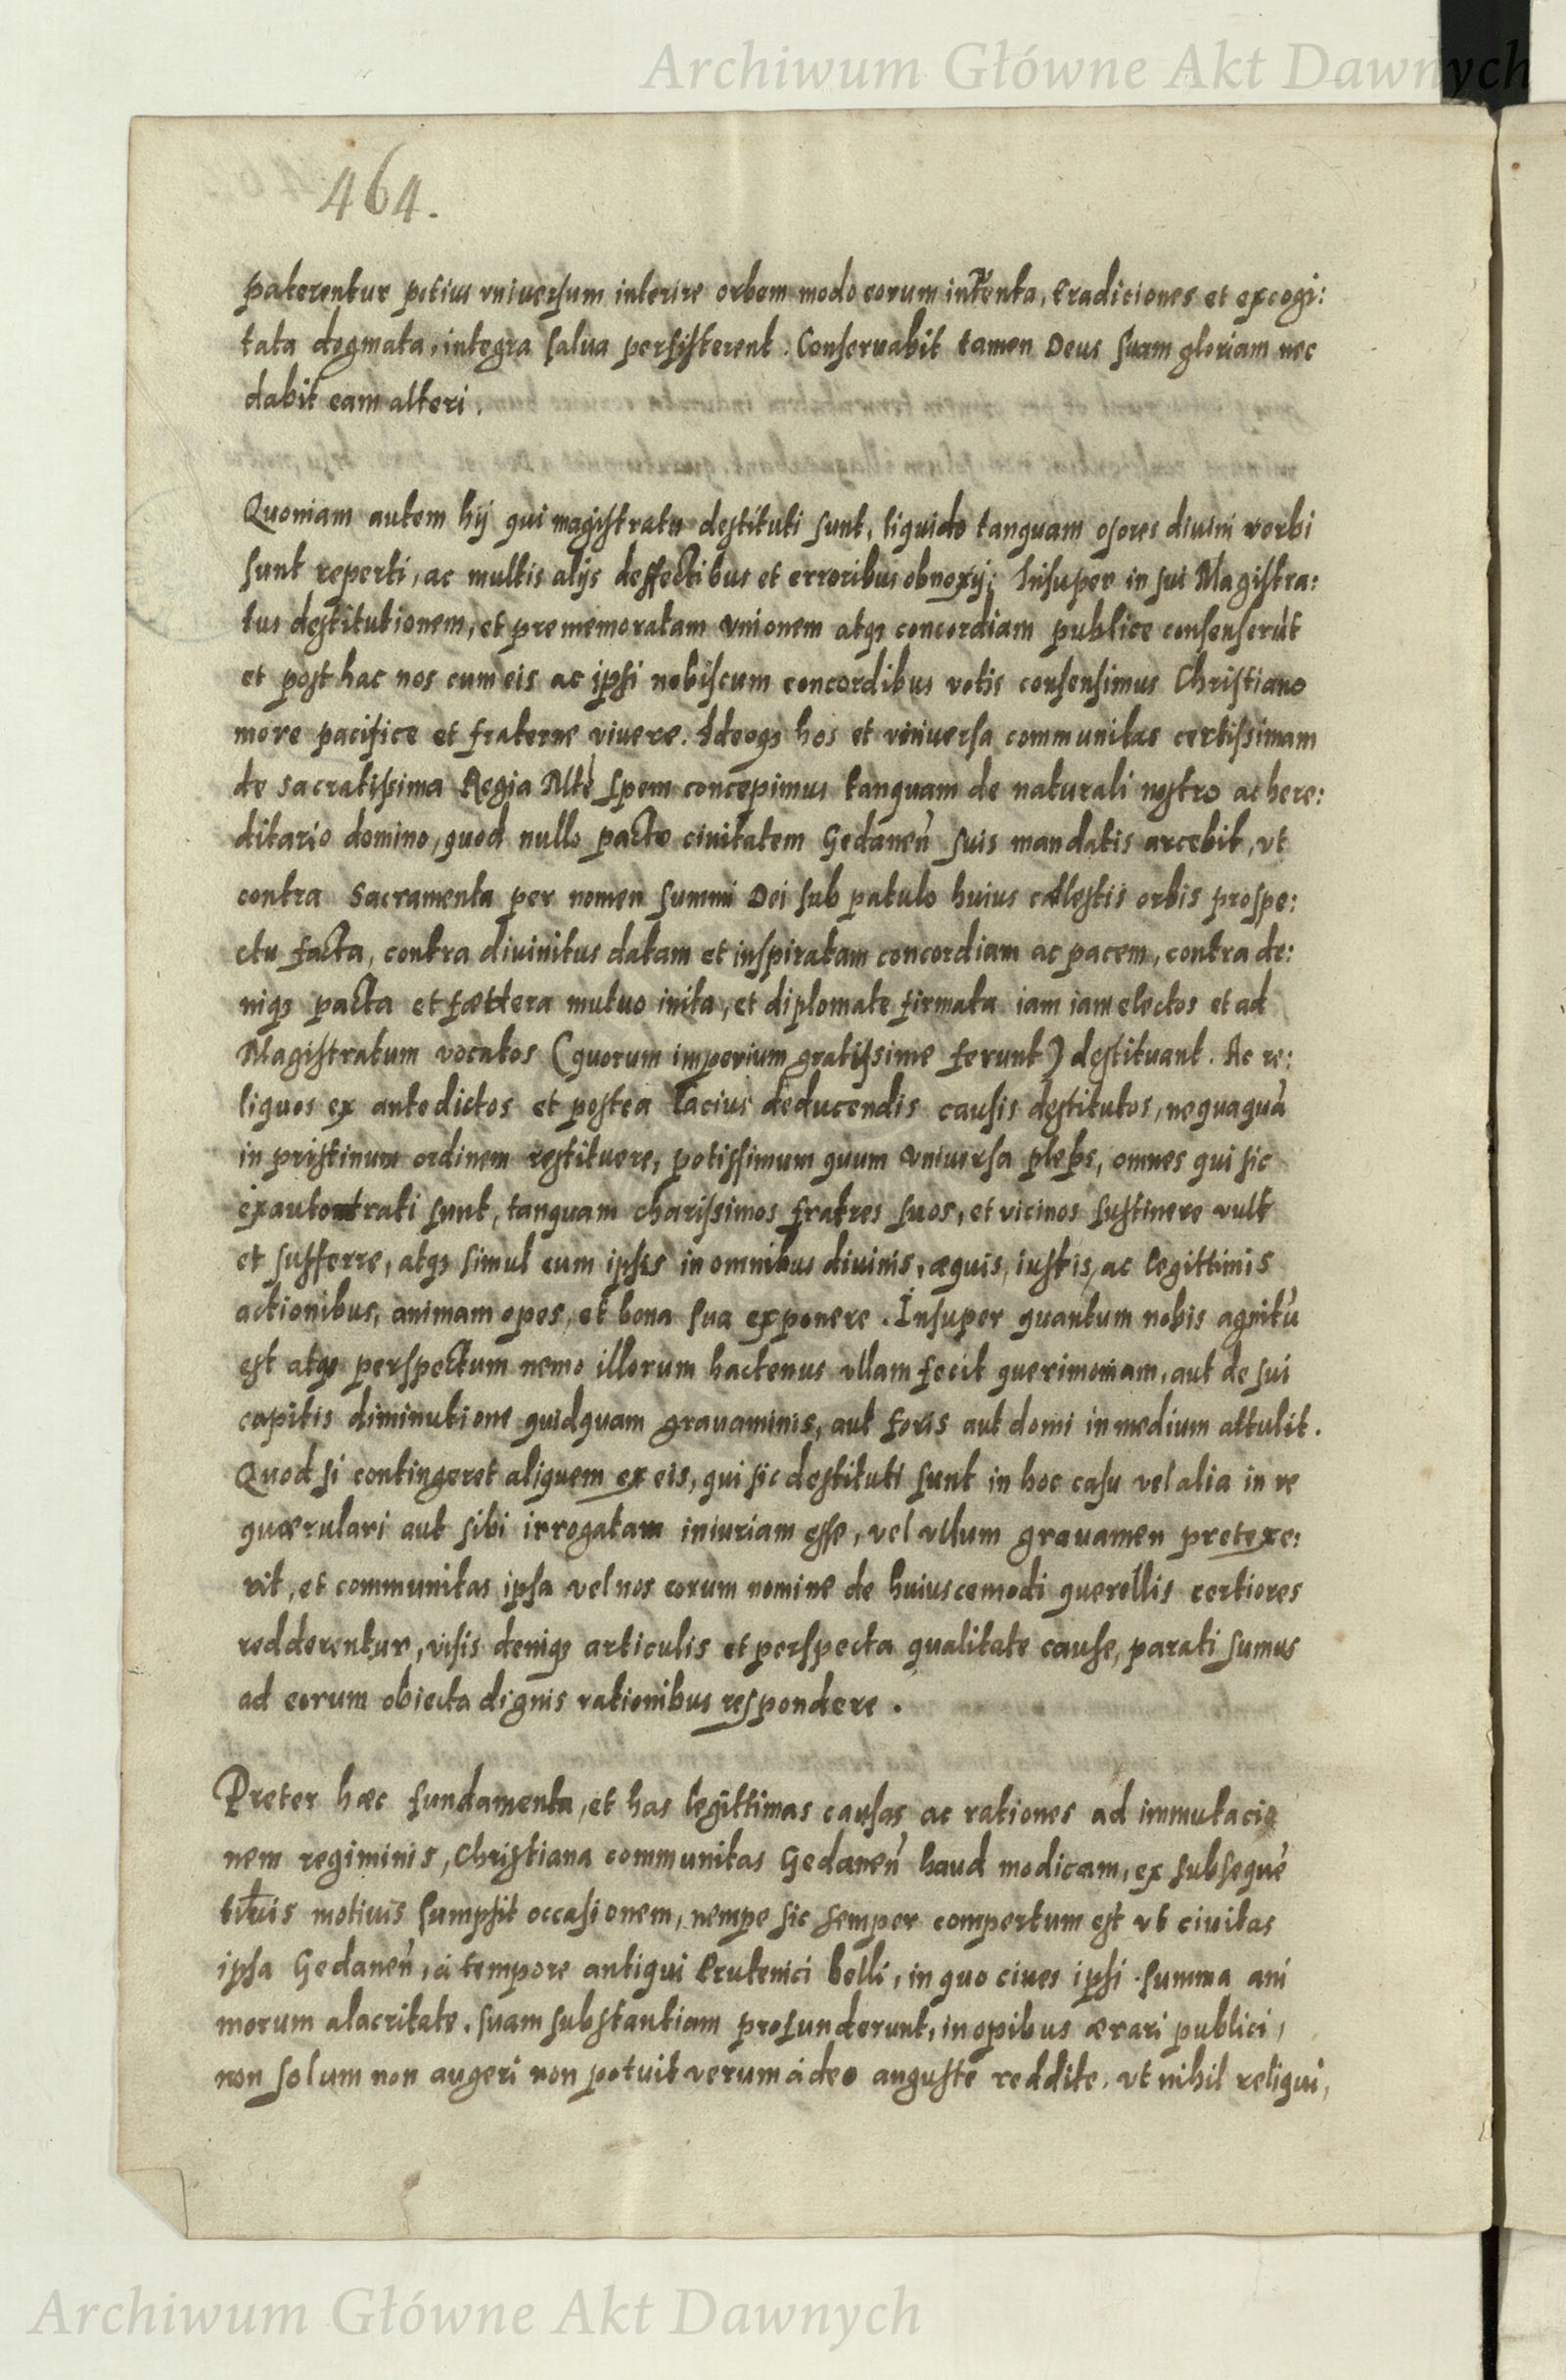 Archiwum Główne Akt Dawnych
464.
paterentur potius vniuersum interire orbem modo eorum intenta, traditiones et excogi:
tata dogmata, integra salua persisterent. Conseruabit tamen Deus suam gloriam nec
dabit eam alteri.
Quoniam autem hij qui magistratu destituti sunt, liquido tanquam osores diuini verbi
sunt reperti, ac multis alijs deffectibus et erroribus obnoxij; Insuper in sui Magistra:
tus destitutionem, et prememoratam vnionem atqꝫ concordiam publice consenserūt
et post hac nos cum eis ac ipsi nobiscum concordibus votis consensimus Christiano
more pacifice et fraterne viuere. Adeoqꝫ hos et vniuersa communitas certissimam
de sacratissima Regia Mte spem concepimus tanquam de naturali nostro ac here:
ditario domino, quod nullo pacto ciuitatem Gedanen̄ suis mandatis arcebit, vt
contra Sacramenta per nomen summi Dei sub patulo huius cælestis orbis prospe:
ctu facta, contra diuinitus datam et inspiratam concordiam ac pacem, contra de:
niqꝫ pacta et fœdera mutuo inita, et diplomate firmata iam iam electos et ad
Magistratum vocatos (quorum imperium gratissime ferunt) destituant. Ac re:
liquos ex antedictos et postea lacius deducendis causis destitutos, nequaquā
in pristinum ordinem restituere, potissimum quum vniuersa pleps, omnes qui sic
exautorati sunt, tanquam charissimos fratres suos, et vicinos sustinere vult
et sufferre, atqꝫ simul cum ipsis in omnibus diuinis, æquis, iustis, ac legittimis
actionibus, animam opes, et bona sua exponere. Insuper quantum nobis agnitū
est atqꝫ perspectum nemo illorum hactenus vllam fecit querimoniam, aut de sui
capitis diminutione quidquam grauaminis, aut foris aut domi in medium attulit.
Quod si contingeret aliquem ex eis, qui sic destituti sunt in hoc casu vel alia in re
quærulari aut sibi irrogatam iniuriam esse, vel vllum grauamen pretexe:
rit, et communitas ipsa vel nos eorum nomine de huiuscemodi querellis certiores
redderentur, visis deniqꝫ articulis et perspecta qualitate cause, parati sumus
ad eorum obiecta dignis rationibus respondere.
Preter hæc fundamenta, et has legittimas causas ac rationes ad immutacio
nem regiminis, Christiana communitas Gedanen̄ haud modicam, ex subsequē
tibus motiuis sumpsit occasionem, nempe sic semper compertum est vt ciuitas
ipsa Gedanen̄, à tempore antiqui Prutenici belli, in quo ciues ipsi summa ani
morum alacritate, suam substantiam profunderunt, in opibus ærari publici,
non solum non augeri non potuit verum adeo anguste reddite, vt nihil reliqui,
Archiwum Główne Akt Dawnych